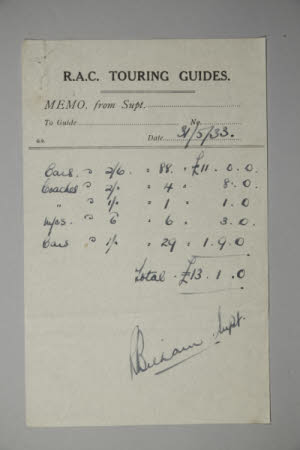 R.A.C. TOURING GUIDES.
MEMO. from Supt.
To Guide No.
Date 31/5/33.
Cars @ 2/6 " 88 " £11. 0. 0
Coaches @ 2/- " 4 " 8. 0
" @ 1/- " 1 " 1. 0
@ 6 " 6 " 3. 0
Cars @ 1/- " 29 " 1. 9. 0
Total £13. 1. 0
Supt.